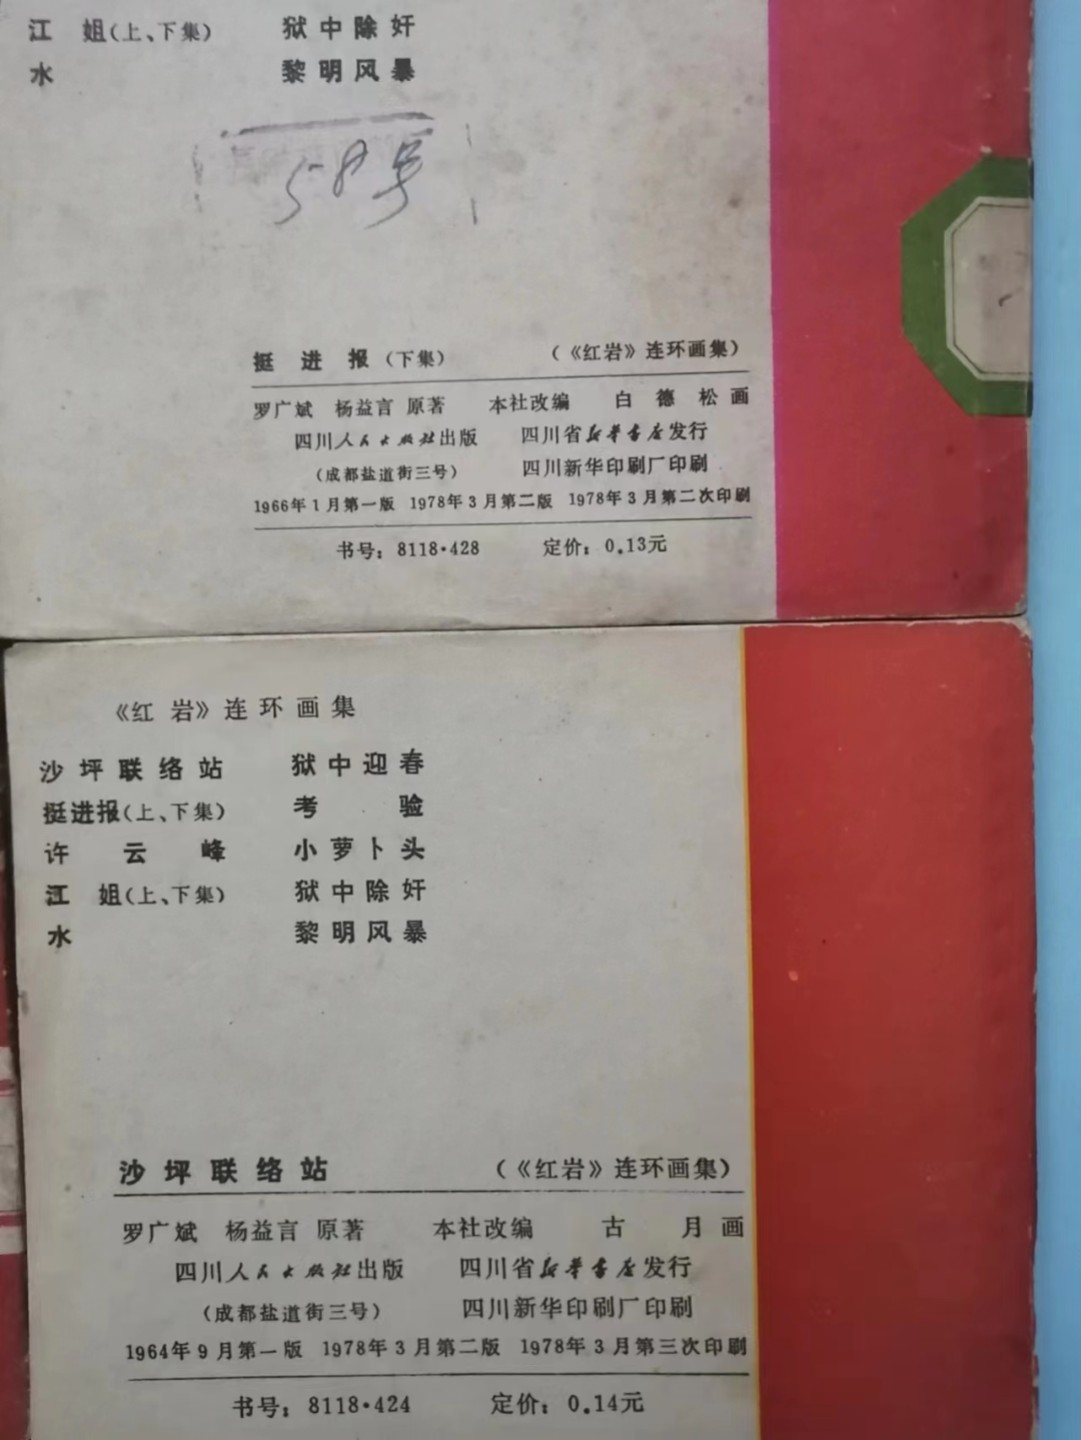 江 姐(上、下集) 狱中除奸
水 黎明风暴
58号
挺进报(下集) (《红岩》连环画集)
罗广斌 杨益言 原著 本社改编 白德松画
四川人民出版社出版 四川省新华书店发行
(成都盐道街三号) 四川新华印刷厂印刷
1966年1月第一版 1978年3月第二版 1978年3月第二次印刷
书号:8118·428 定价:0.13元
《红岩》连环画集
沙坪联络站 狱中迎春
挺进报(上、下集) 考验
许云峰 小萝卜头
江 姐(上、下集) 狱中除奸
水 黎明风暴
沙坪联络站 (《红岩》连环画集)
罗广斌 杨益言 原著 本社改编 古月画
四川人民出版社出版 四川省新华书店发行
(成都盐道街三号) 四川新华印刷厂印刷
1964年9月第一版 1978年3月第二版 1978年3月第三次印刷
书号:8118·424 定价:0.14元